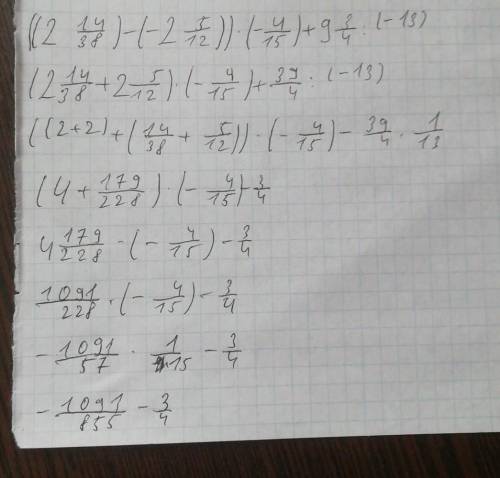 ((2 14/38) - (-2 5/12)) · (-4/15) + 9 3/4 : (-13)
(2 14/38 + 2 5/12) · (-4/15) + 39/4 : (-13)
((2+2) + (14/38 + 5/12)) · (-4/15) - 39/4 · 1/13
(4 + 179/228) · (-4/15) - 3/4
4 179/228 · (-4/15) - 3/4
1091/228 · (-4/15) - 3/4
-1091/57 · 1/15 - 3/4
-1091/855 - 3/4